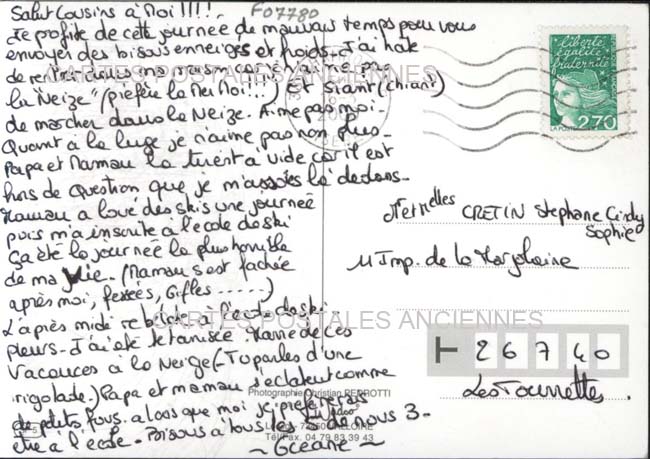 F07780
Salut Cousins à Moi !!!!
Je profite de cette journée de mauvais temps pour vous
envoyer des bisous enneigés et froids. J'ai hâte
de rentrer dans ma maison car je n'aime pas
la "Neize" (préfère la Mer Moi!!!) Et Siant (chiant)
de marcher dans la Neize. Aime pas moi -
Quant à la luge je n'aime pas non plus -
Papa et Maman la tirent à vide car il est
hors de question que je m'assoies là dedans -
Maman a loué des skis une journée
puis m'a inscrite à l'école de ski
ça été la journée la plus horrible
de ma vie - (Maman s'est fachée
après moi, fessées, Gifles ......)
L'après midi à l'école de ski
pleurs - J'ai été Marre de ces
Vacances à la Neige (- Tu parles d'une
rigolade.) Papa et maman s'éclatent comme
de petits fous alors que moi je préfèrerais
être à l'école - Bisous à tous les 3 de nous 3 -
~ Océane ~
CARTES POSTALES ANCIENNES
CARTES POSTALES ANCIENNES
liberté
égalité
fraternité
2,70
LA POSTE
CRETIN Stephane Cindy
Sophie
11 Imp. de la Marjolaine
26740
Les Tourrettes
Photographie Christian PERROTTI
VALLOIRE
Tél/Fax. 04 79 83 39 43